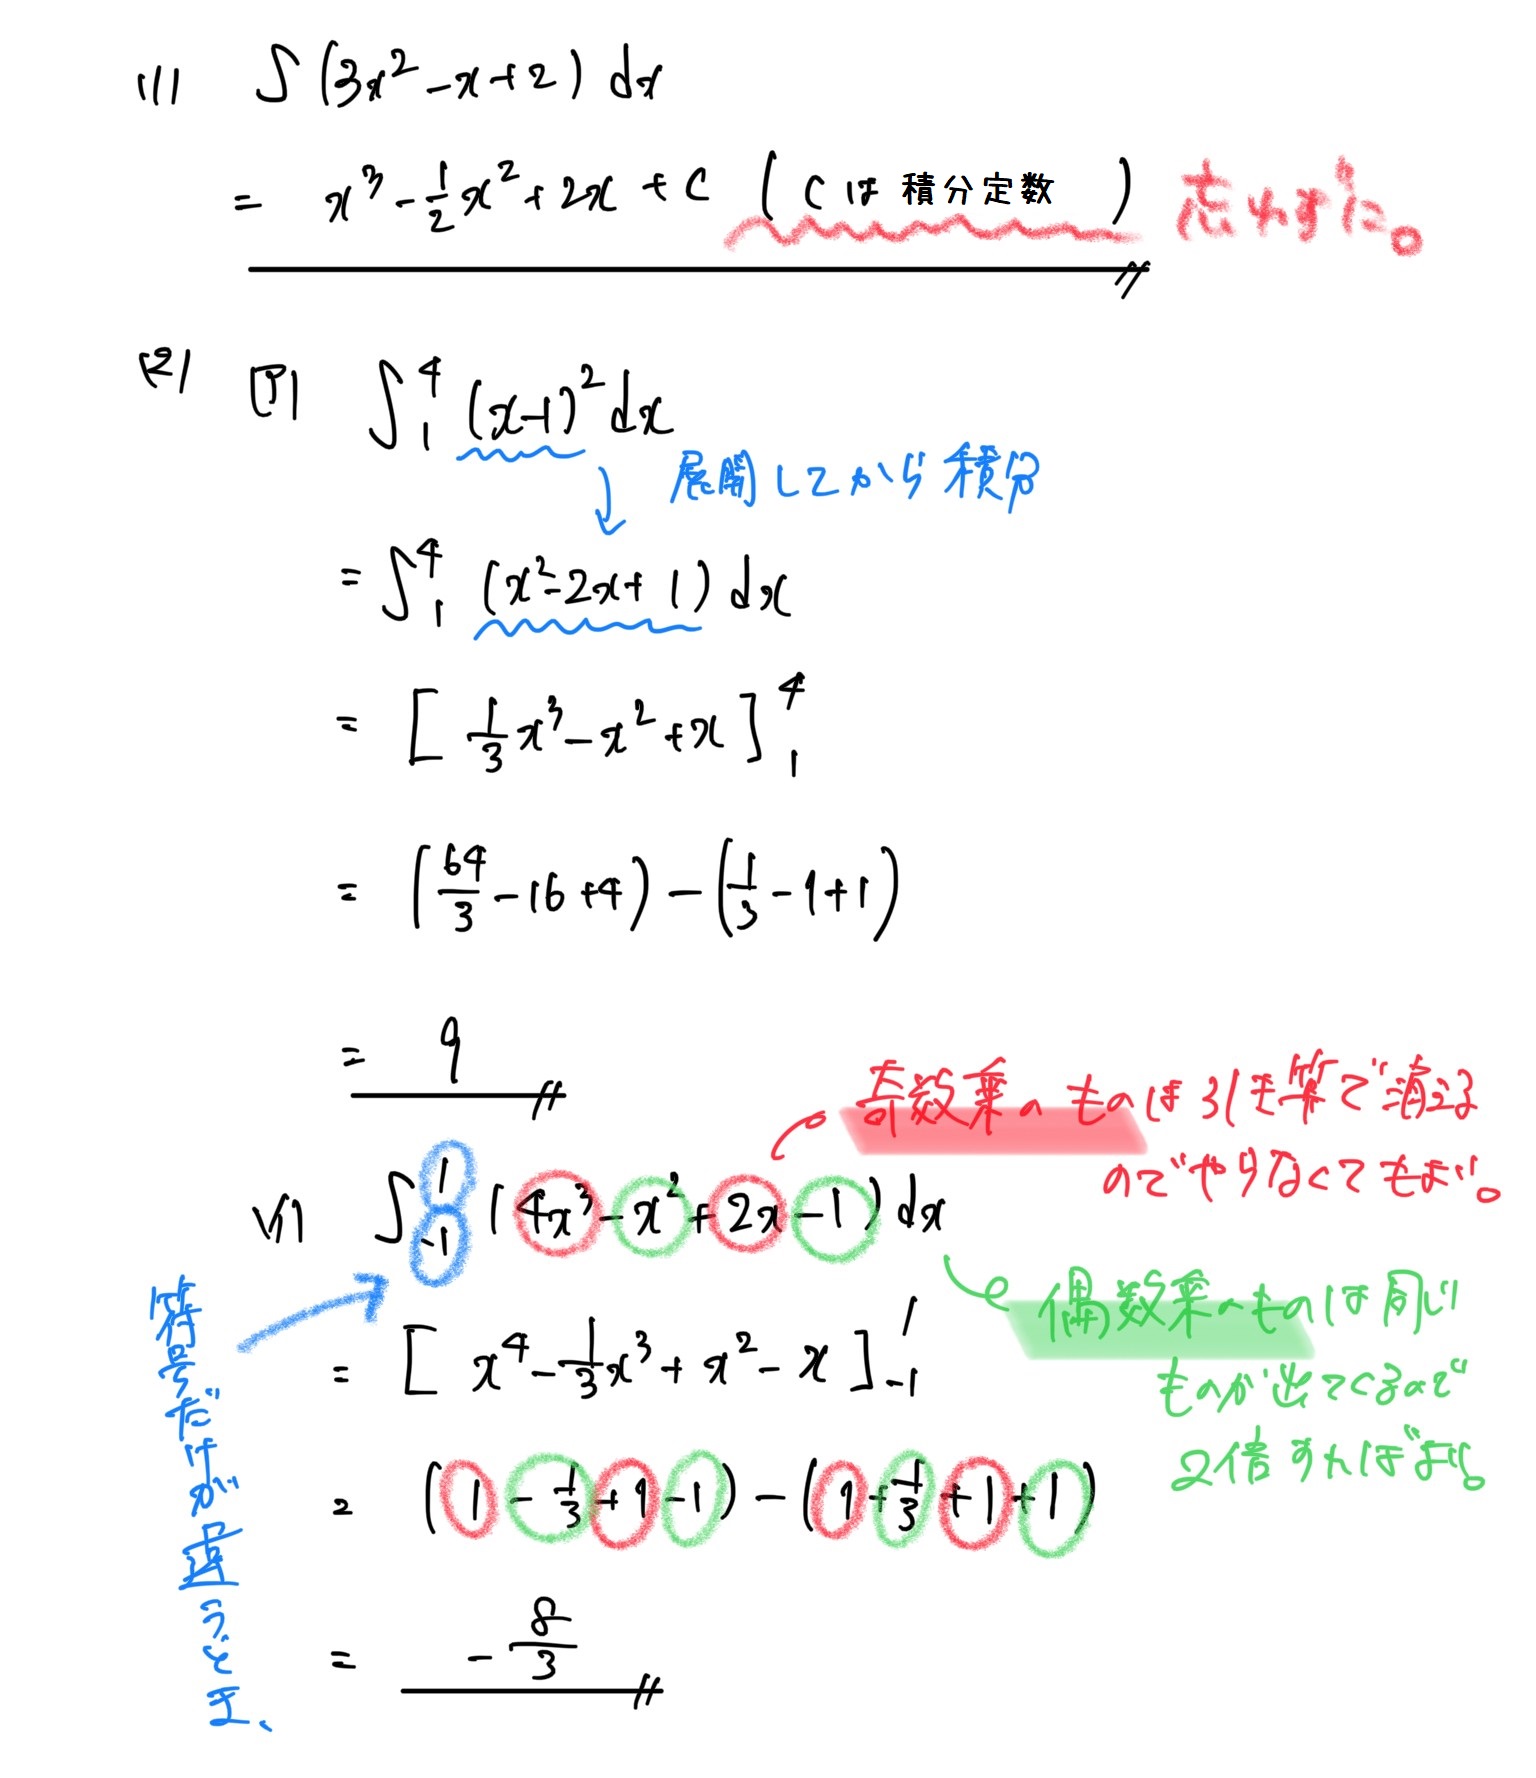 (1) ∫(3x²-x+2)dx
= x³-1/2x²+2x+C (Cは積分定数) 忘れずに。
(2) (ア) ∫₁⁴(x-1)²dx
展開してから積分
=∫₁⁴(x²-2x+1)dx
= [1/3x³-x²+x]₁⁴
= (64/3-16+4)-(1/3-1+1)
= 9
奇数乗のものは引き算で消える
のでやらなくてもよい。
(イ) ∫₋₁¹(4x³-x²+2x-1)dx
偶数乗のものは同じ
ものが出てくるので
2倍すればよい。
符号だけが違うとき、
= [x⁴-1/3x³+x²-x]₋₁¹
= (1-1/3+1-1)-(1+1/3+1+1)
= -8/3